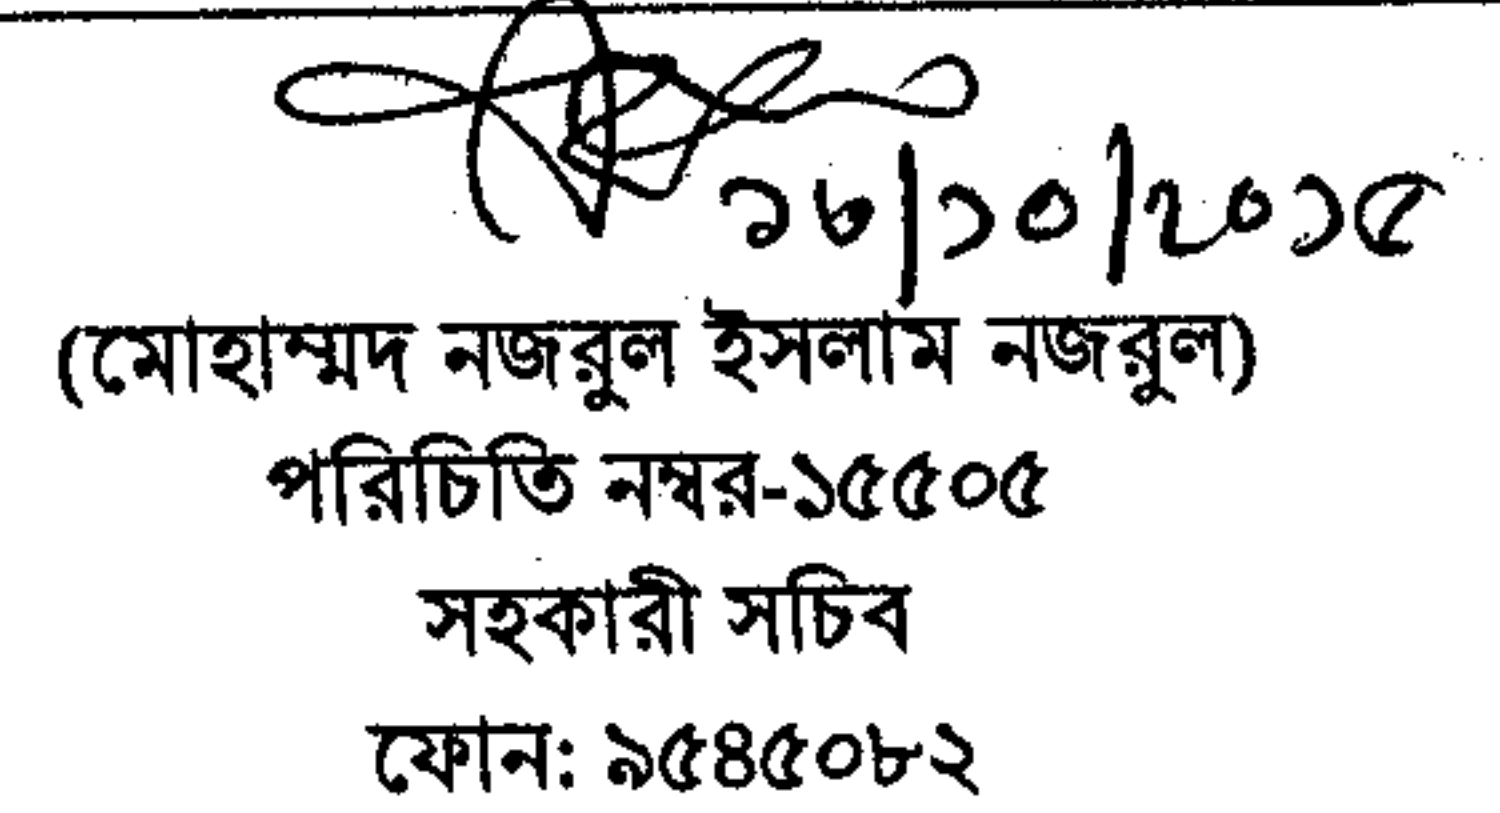 ১৮/১০/২০১৫
(মোহাম্মদ নজরুল ইসলাম নজরুল)
পরিচিতি নম্বর-১৫৫০৫
সহকারী সচিব
ফোন: ৯৫৪৫০৮২